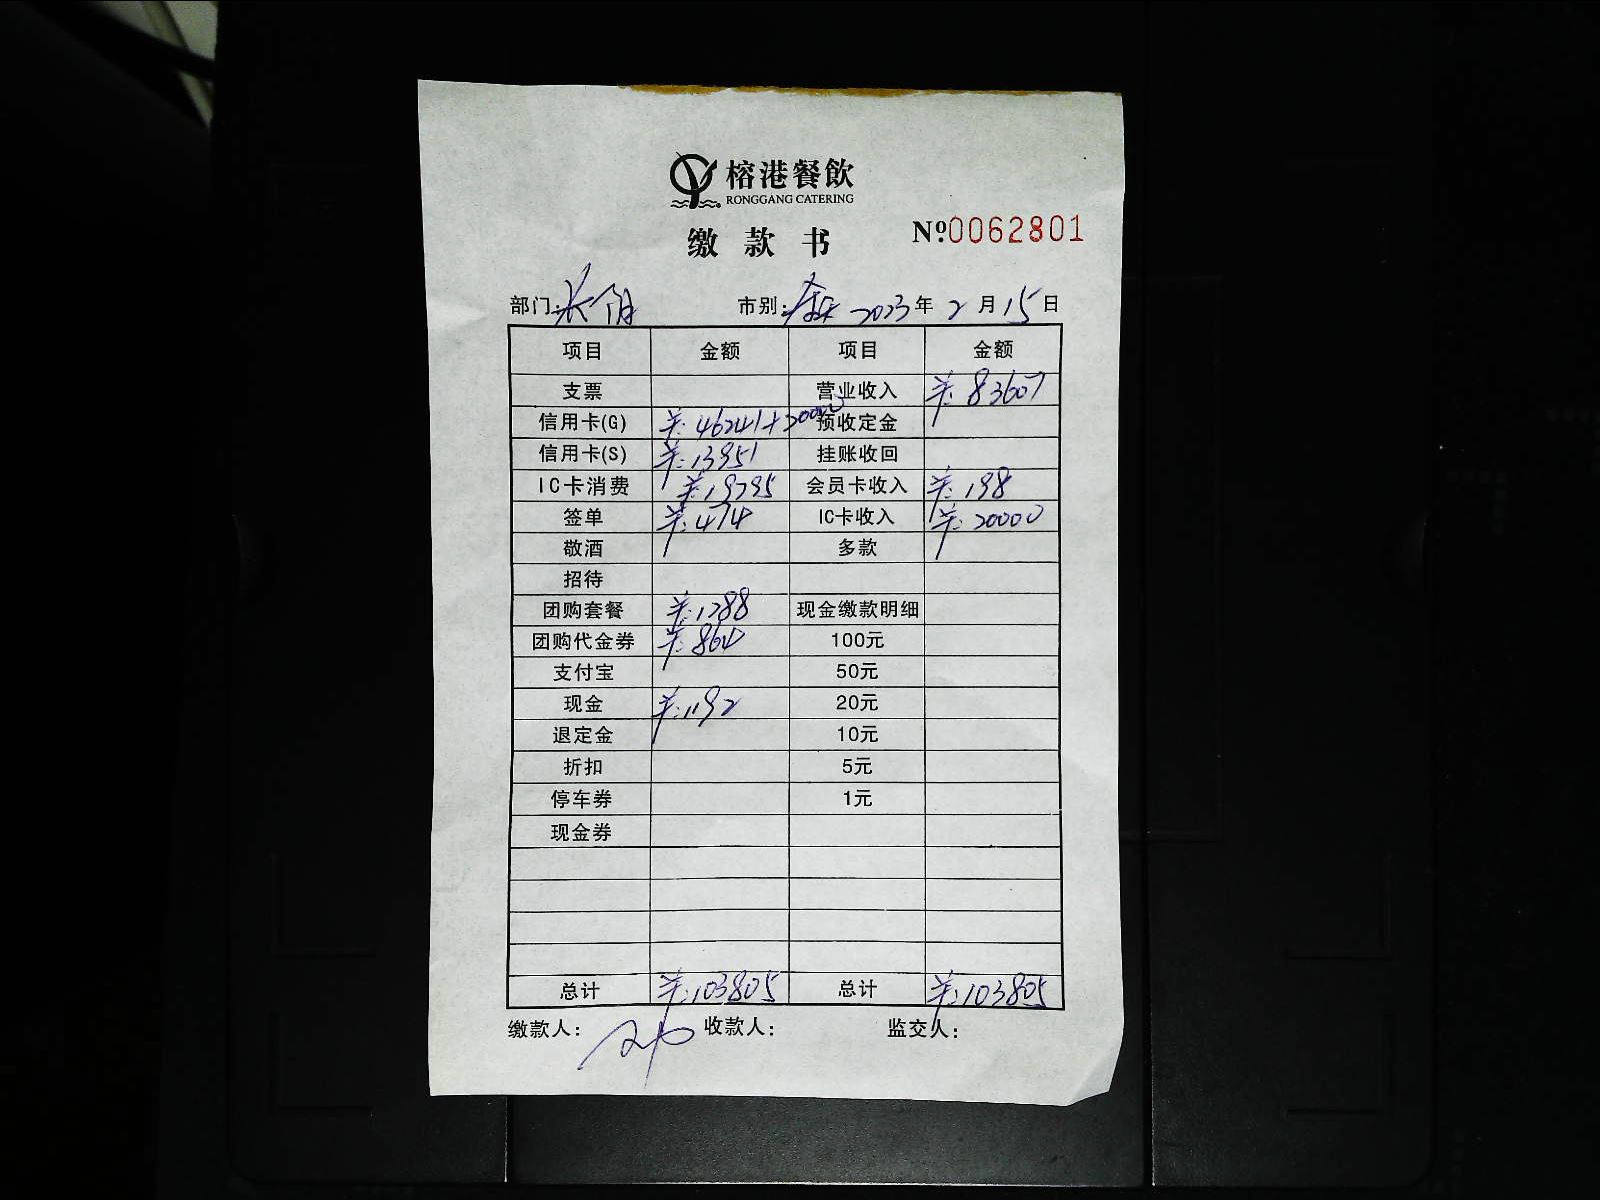 榕港餐飲
RONGGANG CATERING
缴款书 №0062801
部门: 市别: 2023年2月15日
项目 金额 项目 金额
支票 营业收入 ¥:83607
信用卡(G) ¥:46241+20000 预收定金
信用卡(S) ¥:13951 挂账收回
IC卡消费 ¥:19795 会员卡收入 ¥:198
签单 ¥:474 IC卡收入 ¥:20000
敬酒 多款
招待
团购套餐 ¥:1288 现金缴款明细
团购代金券 ¥:864 100元
支付宝 50元
现金 ¥:1192 20元
退定金 10元
折扣 5元
停车券 1元
现金券
总计 ¥:103805 总计 ¥:103805
缴款人: 收款人: 监交人: